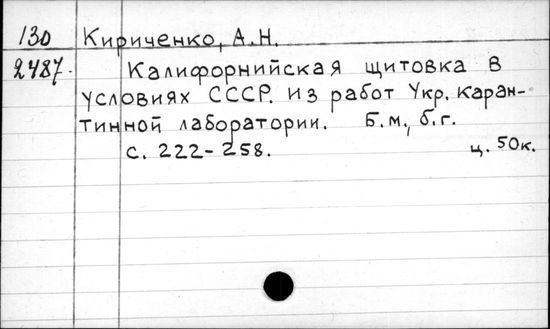 130 Кириченко, А.Н.
2487. Калифорнийская щитовка в
условиях СССР. Из работ Укр. каран-
тинной лаборатории. Б.м., б.г.
с. 222-258. ц. 50к.